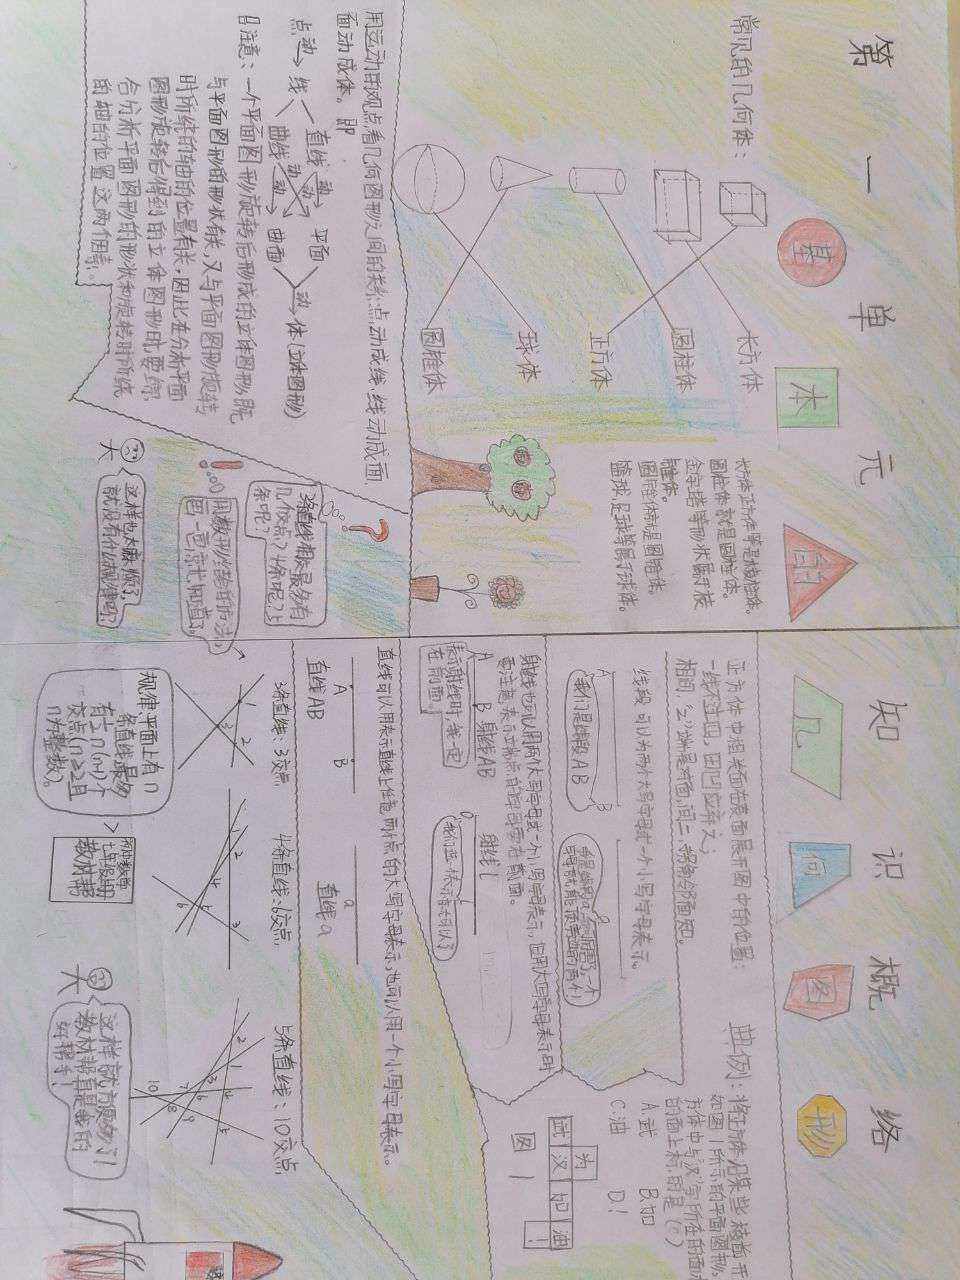 第一单元 知识概络
基本的几何图形
常见的几何体：
长方体
圆柱体
正方体
球体
圆锥体
长方体正方体等是棱柱体。
圆柱体就是圆柱体。
金字塔等物体属于棱
锥体。
圆锥体就是圆锥体。
篮球足球等属于球体。
用运动的观点看几何图形之间的关系：点动成线，线动成面，
面动成体。即
点 动 线 直线 动 平面 动 体(立体图形)
曲线 动 曲面
注意：一个平面图形旋转后形成的立体图形，既
与平面图形的形状有关，又与平面图形旋转
时所绕的轴的位置有关。因此在分析平面
图形旋转后得到的立体图形时，要综
合分析平面图形的形状和旋转时所绕
的轴的位置这两个因素。
几个交点？4条呢？5
条呢？
用数形结合的方法
画一画就知道。
这样也太麻烦了，
就没有什么规律吗？
正方体中相关面在表面展开图中的位置：
一线不过四，田凹应弃之；
相间、“Z”端是对面，间二、拐角邻面知。
线段可以为两个大写字母或一个小写字母表示。
A B
我们是线段AB
a
射线也可以用两个大写字母或一个小写字母表示，但用大写字母表示时
需注意表示端点的字母要在前面。
A B 射线AB
表示射线时，我一定
在前面。
O l
射线l
直线可以用表示直线上任意两个点的大写字母表示，也可以用一个小写字母表示。
A B
直线AB
a
直线a
3条直线：3交点
1 2 3
4条直线：6交点
1 2 3 4 5 6
5条直线：10交点
1 2 3 4 5 6 7 8 9 10
规律：平面上有n
条直线最多
有½n(n-1)个
交点(n≥2且
n为整数)。
初中数学
七年级上册
教材帮
这样就方便多了！
教材帮真是我的
好帮手！
典例：将正方体沿某些棱剪开
如图1所示的平面图形，
方体中与“汉”字所在的面
的面上标的是(C)
A.武 B.如
C.油 D.！
为
武 汉 加 油
！
图1